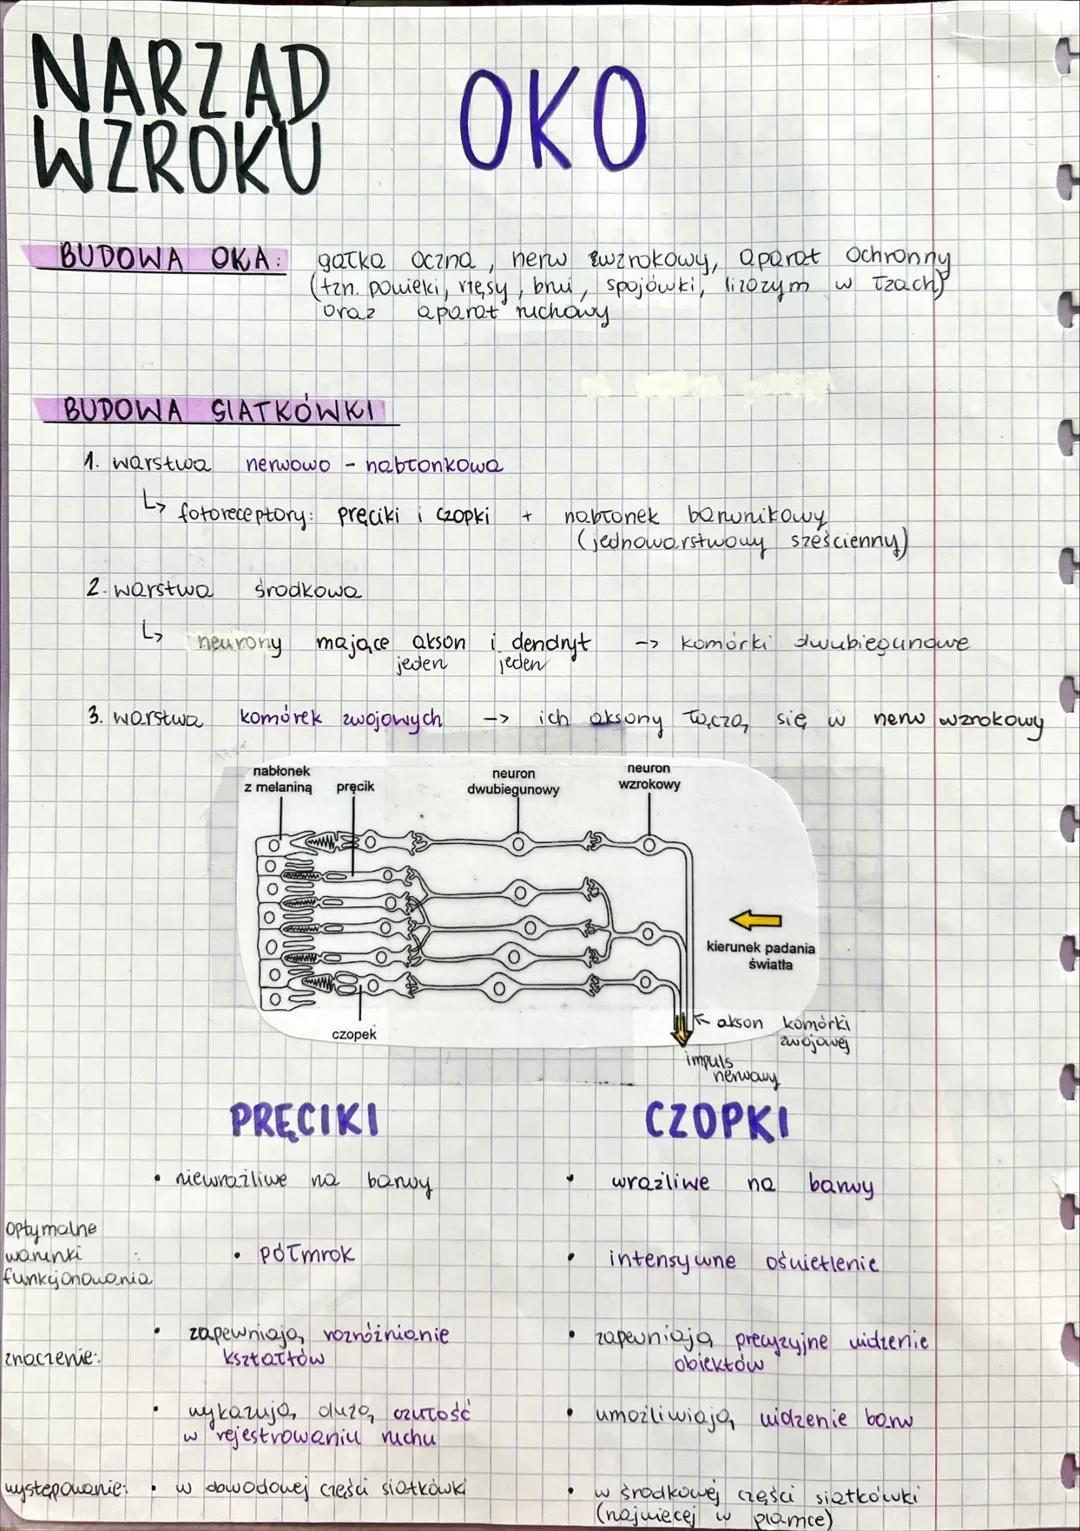 NARZĄD
WZROKU
OKO
BUDOWA OKA: gałka oczna, nerw wzrokowy, aparat ochronny
(tzn. powieki, rzęsy, brwi, spojówki, lizozym w łzach)
oraz aparat ruchowy
BUDOWA SIATKÓWKI
1. warstwa nerwowo - nabłonkowa
↳ fotoreceptory: pręciki i czopki + nabłonek barwnikowy
(jednowarstwowy sześcienny)
2. warstwa środkowa
↳ neurony mające akson i dendryt -> komórki dwubiegunowe
jeden jeden
3. warstwa komórek zwojowych -> ich aksony łączą się w nerw wzrokowy
nabłonek
z melaniną
pręcik
neuron
dwubiegunowy
neuron
wzrokowy
kierunek padania
światła
czopek
akson komórki
zwojowej
impuls
nerwowy
PRĘCIKI
CZOPKI
• niewrażliwe na barwy
• wrażliwe na barwy
optymalne
warunki
funkcjonowania :
• półmrok
• intensywne oświetlenie
znaczenie:
• zapewniają rozróżnianie
kształtów
• zapewniają precyzyjne widzenie
obiektów
• wykazują dużą czułość
w rejestrowaniu ruchu
• umożliwiają widzenie barw
występowanie:
• w obwodowej części siatkówki
• w środkowej części siatkówki
(najwięcej w plamce)